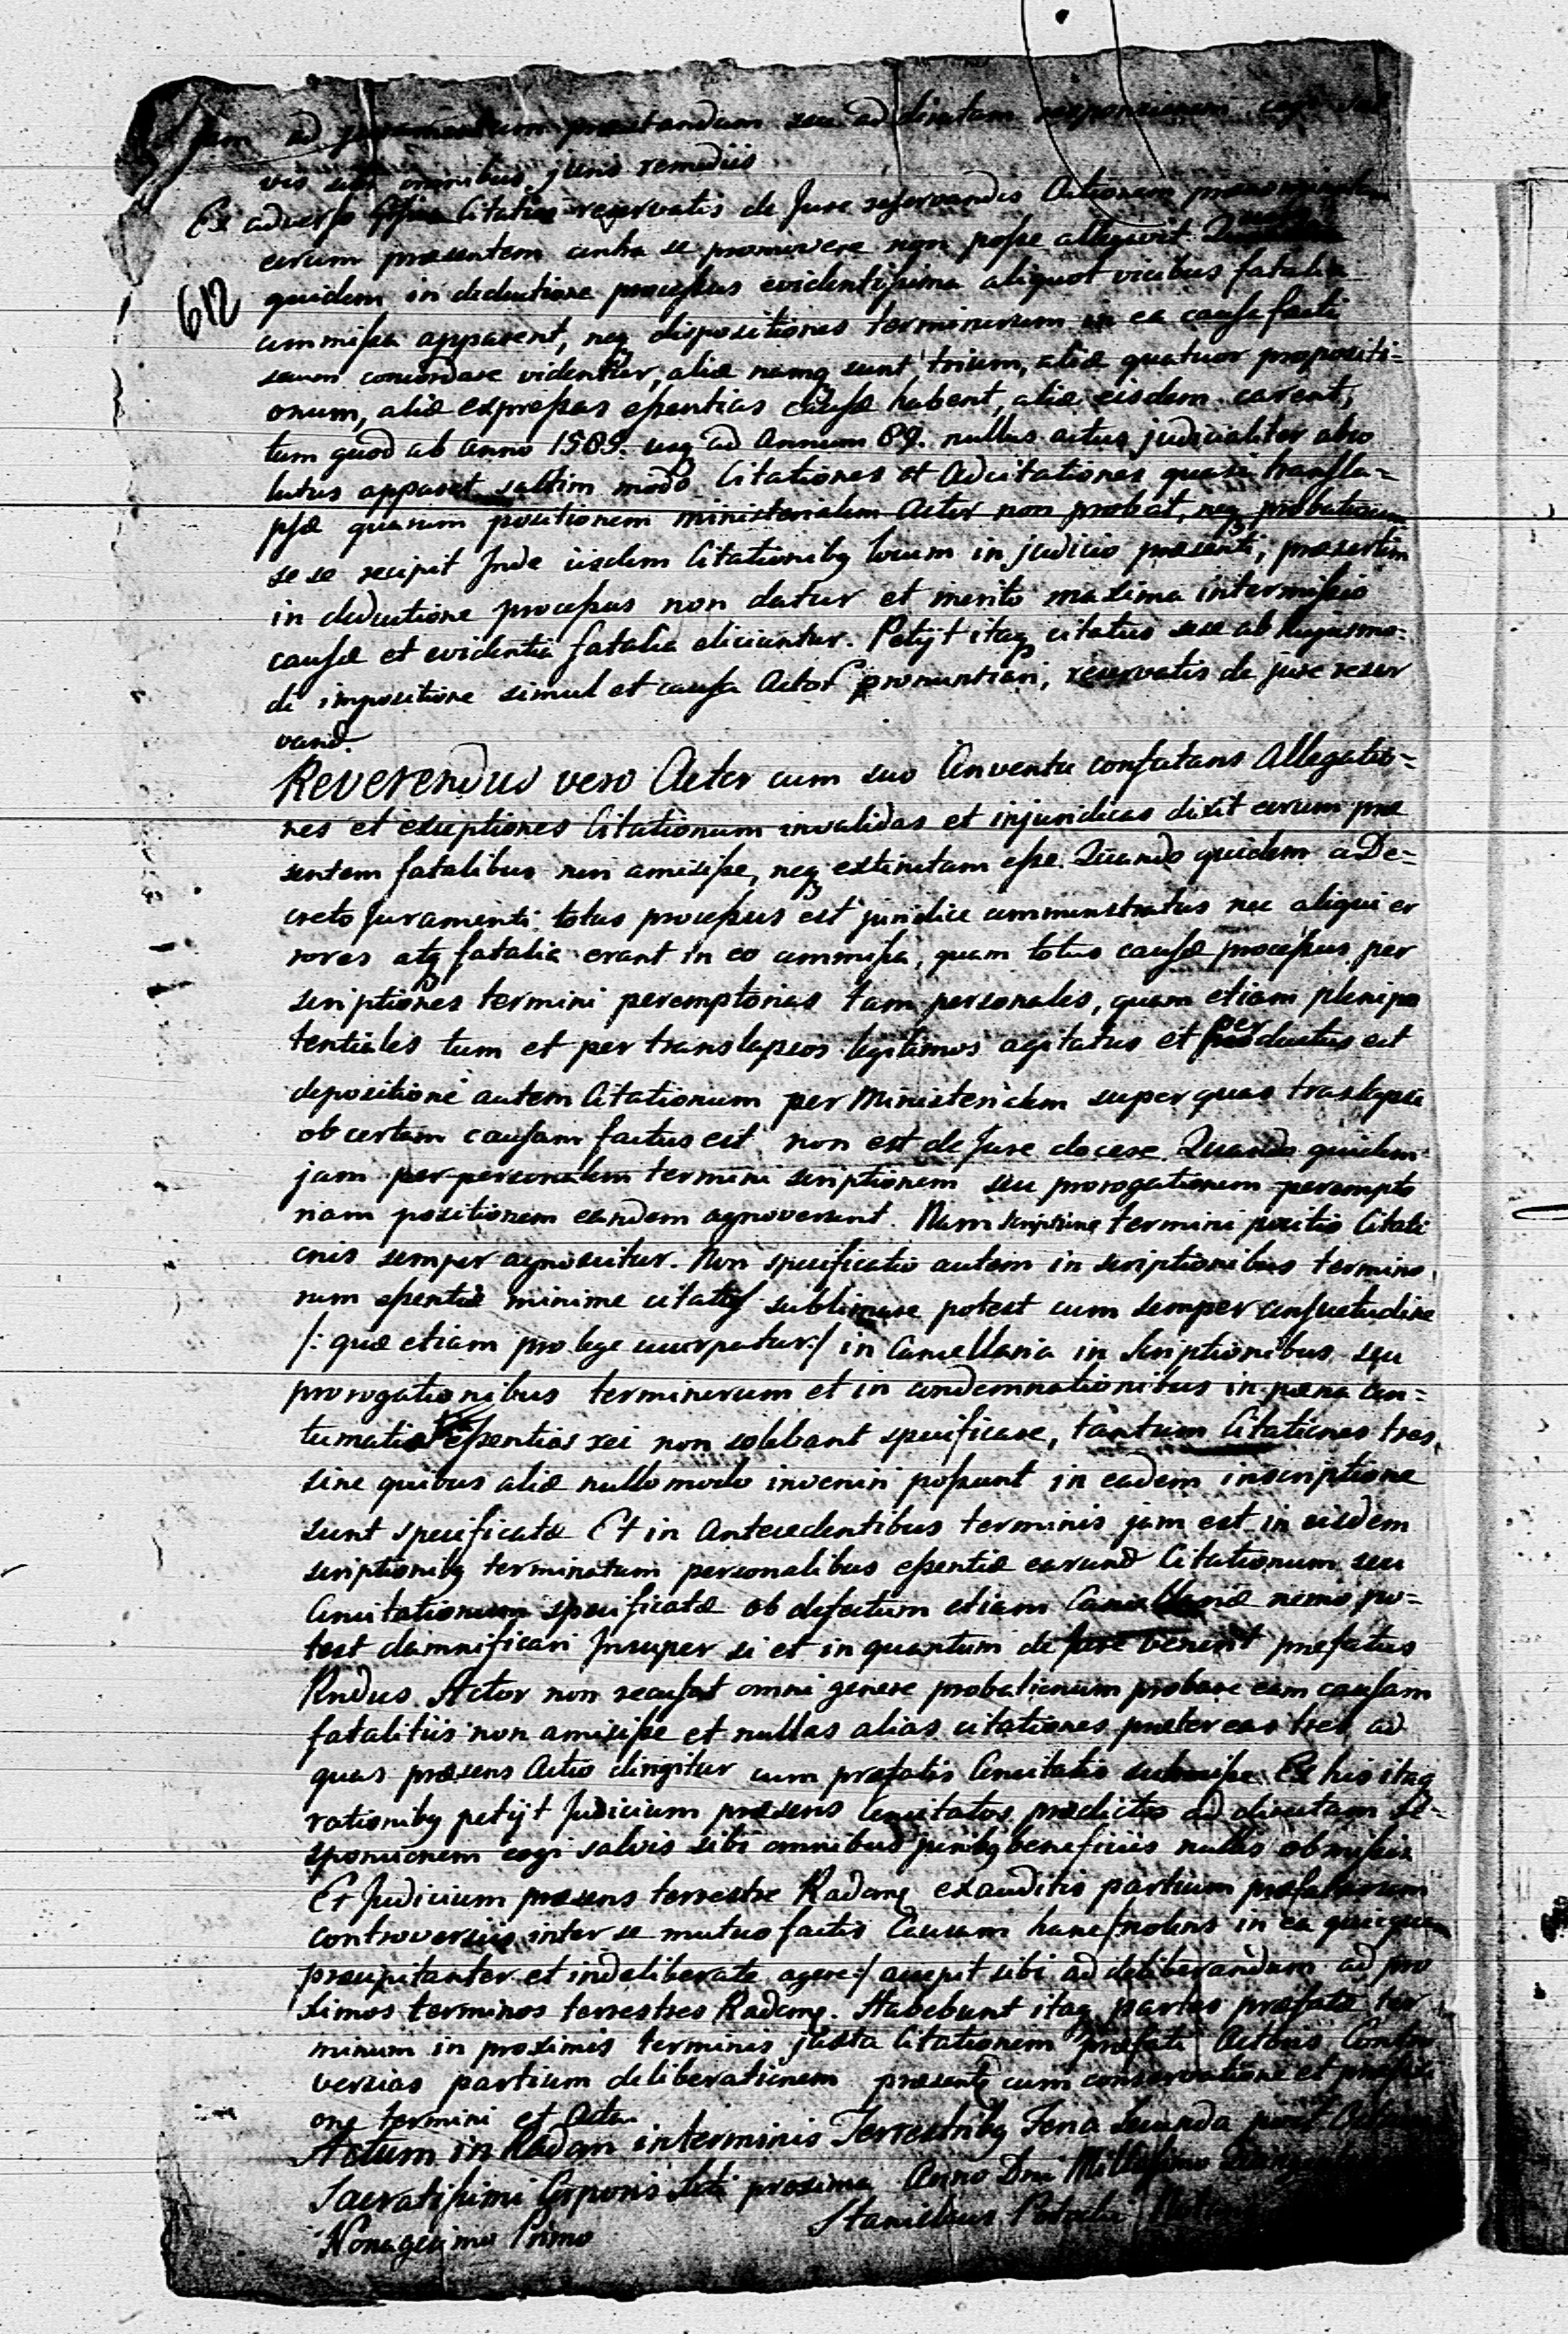 ad juramentum praestandum seu ad directam responsionem cogi sal
vis sibi omnibus juris remediis
Ex adverso Citatus reservatis de Jure reservandis Actionem
earum praesentem contra se promovere non posse allegavit
612
quidem in deductione processus evidentissima aliquot vicibus fatalia
commissa apparent, neq dispositiones terminorum in ea causa facti
secum concordare videntur, aliæ namq sunt trium, aliæ quatuor propositi=
onum, aliæ expressas essentias causæ habent, aliæ eisdem carent,
tum quod ab anno 1585. usq ad Annum 89. nullus actus judicialiter abso
lutus apparet saltim modo Citationes et Adcitationes quasi transla=
psæ quarum positionem ministerialem Actor non probat, neq probaturum
se se recipit Inde iisdem Citationibq locum in judicio praesenti, praesertim
in deductione processus non datur et merito maxima intermissio
causæ et evidentia fatalia eliciuntur. Petijt itaq citatus sese ab hujusmo=
di impositione simul et causa Actor pronuntiari, reservatis de jure reser
vand.
Reverendus vero Actor cum suo Conventu confutans Allegatio=
nes et exceptiones Citationum invalidas et injuridicas dixit earum præ
sentem fatalibus non amisisse, neq extinctam esse. Quando quidem a De=
creto Juramenti totus processus est juridice amministratus nec aliqui er
rores atq fatalia erant in eo commissa, quam totus causæ processus per
scriptiones termini peremptorias tam personales, quam etiam plenipo
tentiales tum et per translapsos legitimos agitatus et perductus est
depositione autem Citationum per Ministerialem super quas traslapsu
ob certam causam factus est non est de Jure docere Quando quidem
jam per personalem termini scriptionem seu prorogationem perempto
riam positionem earndem agnoverunt. Nam scriptione termini positio Citati
onis semper agnoscitur. Non specificatio autem in scriptionibus termino
rum essentiæ minime citatis sublimare potest cum semper consuetudine
/: quæ etiam pro lege usurpatur:/ in Cancellaria in Scriptionibus seu
prorogationibus terminorum et in condemnationibus in pæna con=
tumatiæ essentias rei non solebant specificare, tantum Citationes tres
sine quibus aliæ nullo modo inveniri possunt in eadem inscriptione
sunt specificatæ Et in Antecedentibus terminis jam est in eisdem
scriptionibq terminatum personalibus essentiæ earund Citationum seu
Concitationum specificatæ ob defectum etiam Cancellariæ nemo po=
test damnificari Insuper si et in quantum de Jure venerit prefatus
Rndus Actor non recusat omni genere probationum probare eam causam
fatalitiis non amisisse et nullas alias citationes præter eas tres ad
quas præsens Actio dirigitur cum prefatis Concitatis Ex his itaq
rationibq petijt Judicium præsens Concitatos prædictos ad directam re=
sponsionem cogi salvis sibi omnibus juribq beneficiis nullis obmissis
Et Judicium præsens terrestre Radomq exauditis partium præfatarum
controversiis inter se mutuo factis Causam hanc /nolens in ea quicquam
præcipitanter et indeliberate agere:/ accepit sibi ad deliberandum ad pro
ximos terminos terrestres Radomq. Habebunt itaq partes præfatæ ter
minum in proximis terminis juxta Citationem præfati Actoris Contro
versias partium deliberationem præsente cum conservatione et
one termini et Acta.
Actum in Radom in terminis Terrestribq Feria Secunda post
Sacratissimi Corporis Xti proxima Anno Dni Millesimo
Nonagesimo Primo
Stanislaus